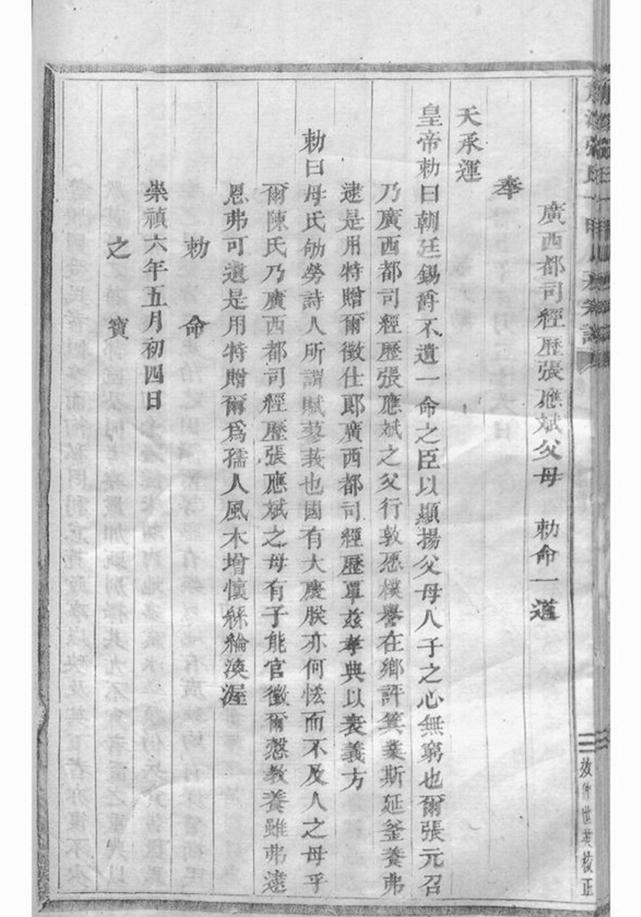 廣西都司經歷張應斌父母　勅命一道
奉
天承運
皇帝勅曰朝廷錫爵不遺一命之臣以顯揚父母人子之心無窮也爾張元召
乃廣西都司經歷張應斌之父行敦愿樸譽在鄉評箕業斯延釜養弗
逮是用特贈爾徵仕郎廣西都司經歷覃兹孝典以表義方
勅曰母氏劬勞詩人所謂賦蓼莪也國有大慶朕亦何恡而不及人之母乎
爾陳氏乃廣西都司經歷張應斌之母有子能官徵爾慇教養雖弗逮
恩弗可遺是用特贈爾爲孺人風木增懷絲綸渙渥
勅命
崇禎六年五月初四日
之寶